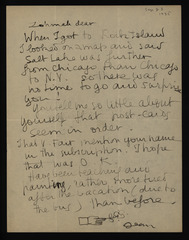 Lohmah dear
When I got to Rock Island
I looked on a map and saw
Salt Lake was further
from Chicago than Chicago
to N.Y. So there was
no time to go and surprise
you.
You tell me so little about
yourself that post-cards
seem in order.
That I can mention your name
in the subscription. I hope
that was O.K.
Have been teaching and
painting, rather more tired
after the vacation (due to
the bus) than before.